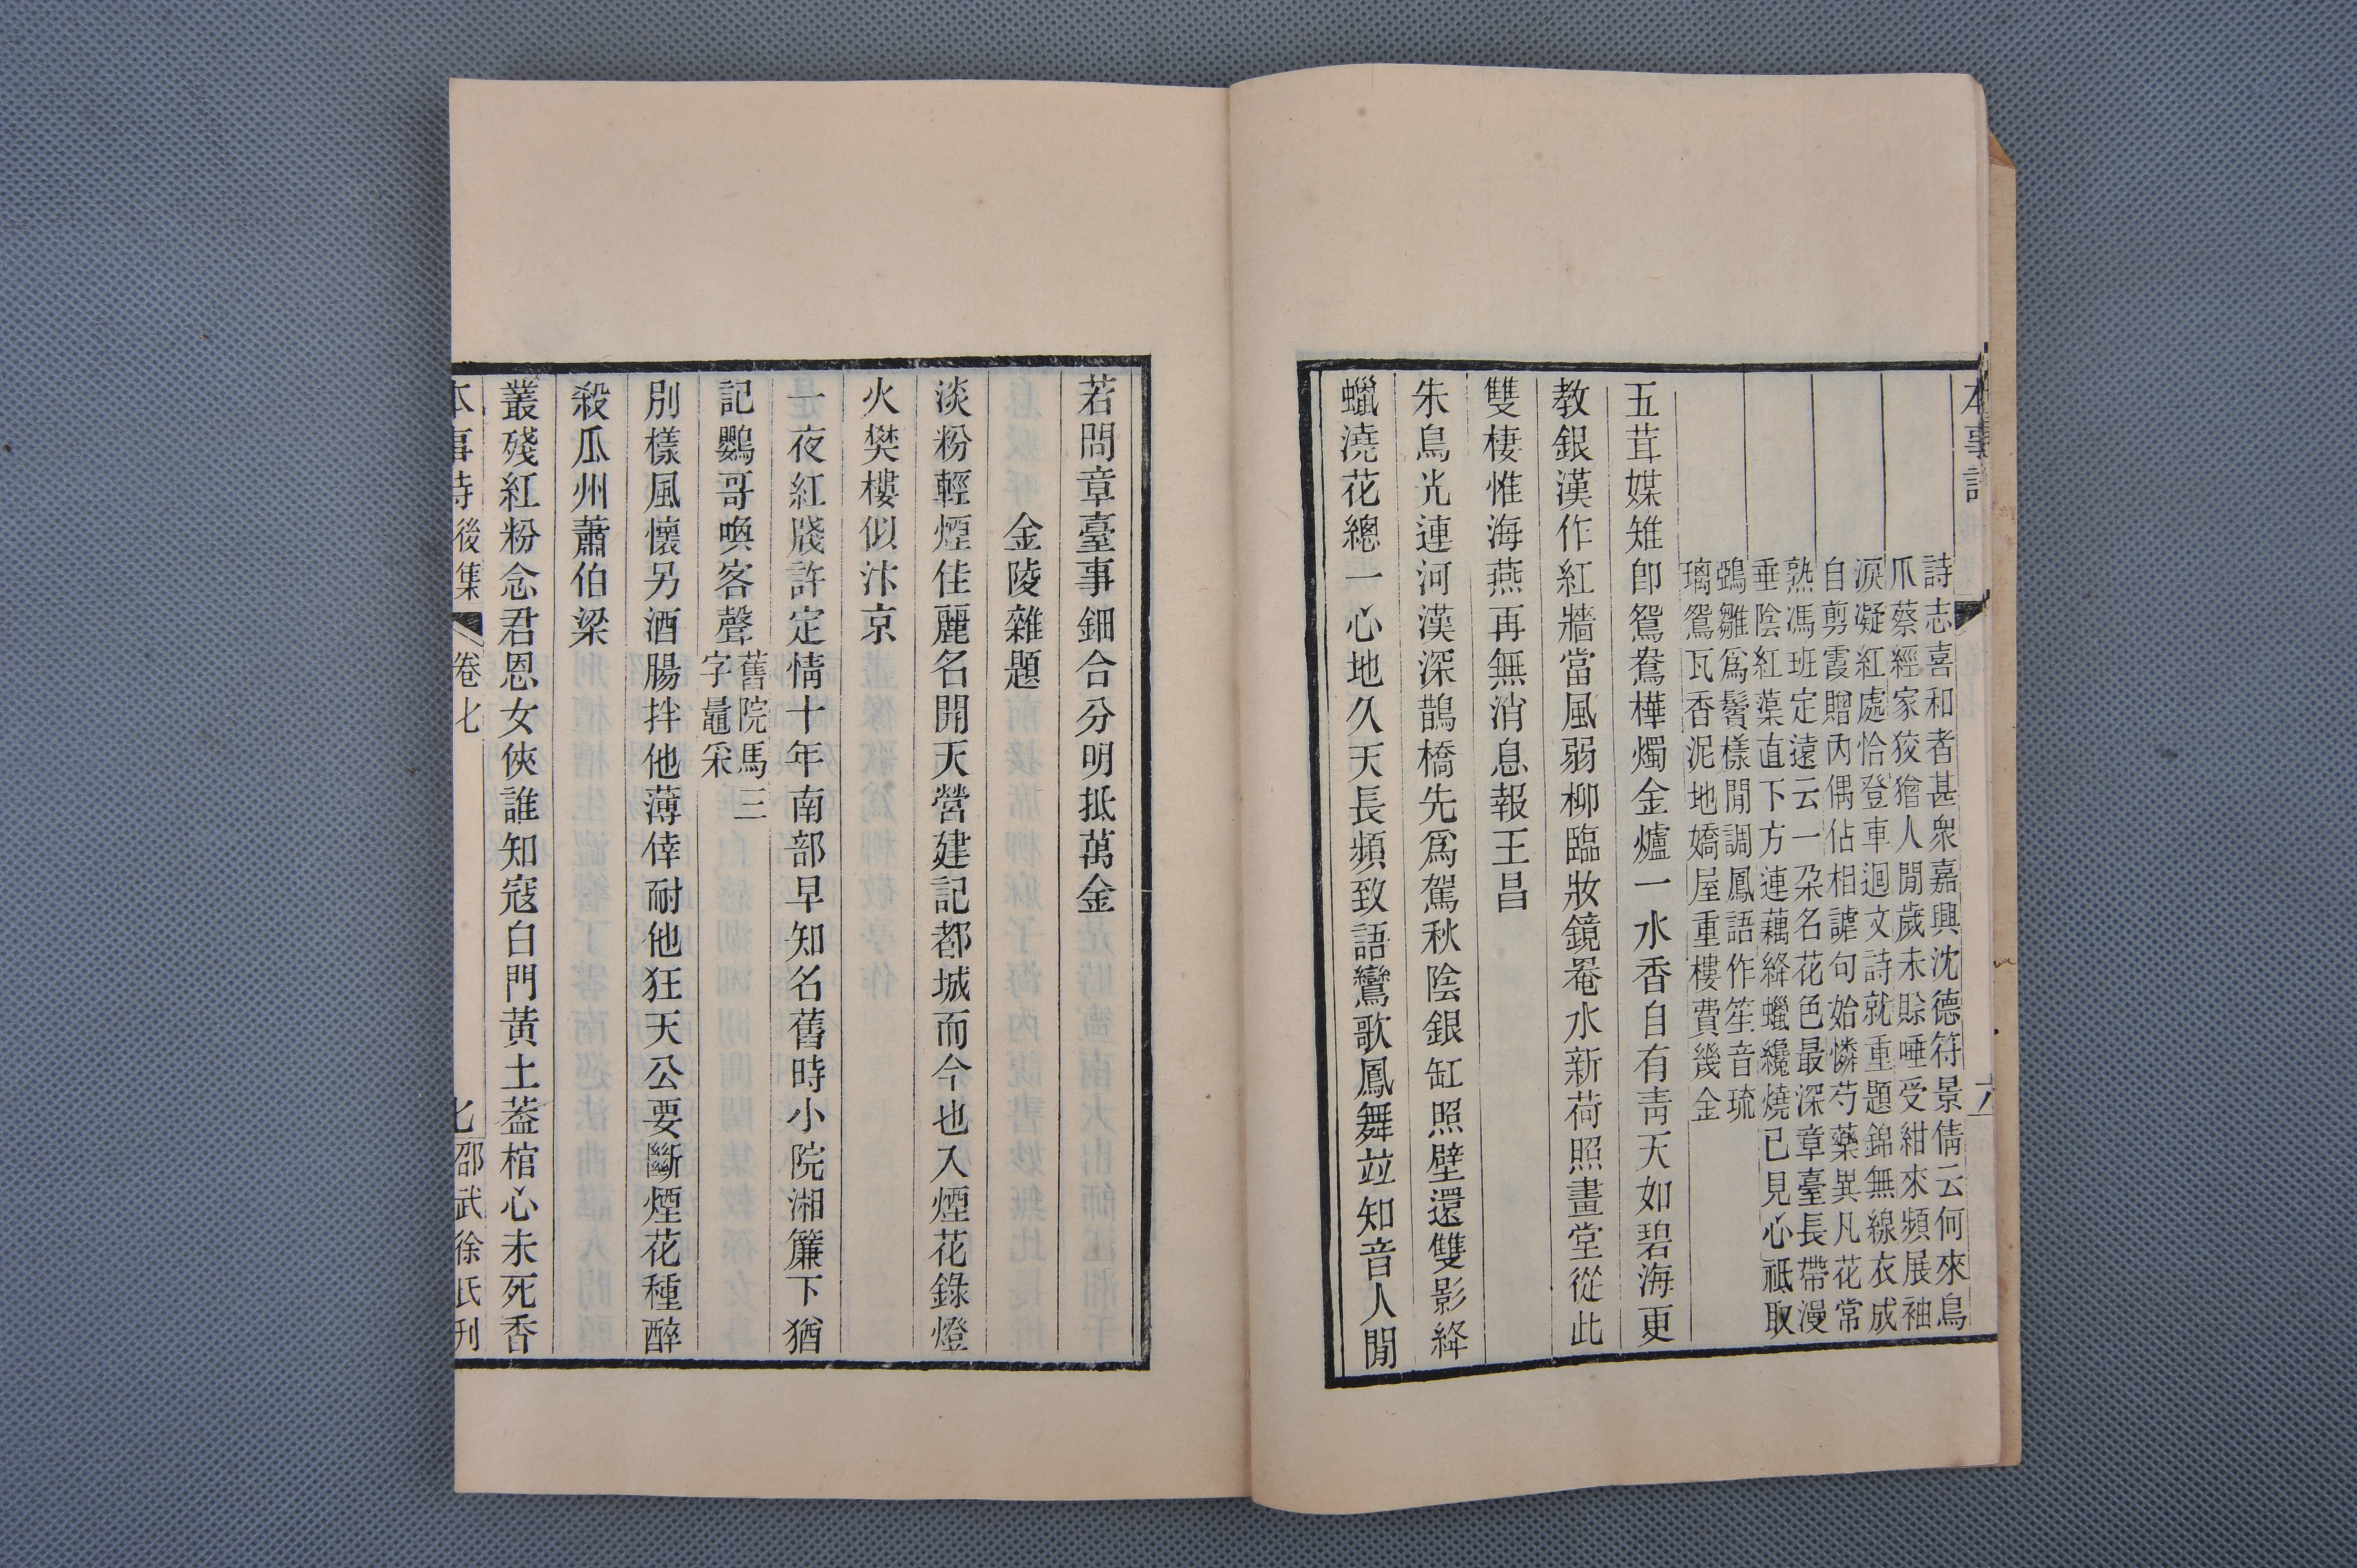 本事詩
六
詩志喜和者甚衆嘉興沈德符景倩云何來鳥
爪蔡經家狡獪人閒歲未賒唾受紺來頻展袖
淚凝紅處恰登車迴文詩就重題錦無線衣成
自剪霞贈內偶佔相謔句始憐芍藥異凡花常
熟馮班定遠云一朶名花色最深章臺長帶漫
垂陰紅蕖直下方連藕絳蠟纔燒已見心祇取
鵶雛爲鬢樣閒調鳳語作笙音琉
璃鴛瓦香泥地嬌屋重樓費幾金
五茸媒雉卽鴛鴦樺燭金爐一水香自有靑天如碧海更
教銀漢作紅牆當風弱柳臨妝鏡罨水新荷照畫堂從此
雙棲惟海燕再無消息報王昌
朱鳥光連河漢深鵲橋先爲駕秋陰銀缸照壁還雙影絳
蠟澆花總一心地久天長頻致語鸞歌鳳舞竝知音人閒
若問章臺事鈿合分明抵萬金
金陵雜題
淡粉輕煙佳麗名開天營建記都城而今也入煙花錄燈
火樊樓似汴京
一夜紅牋許定情十年南部早知名舊時小院湘簾下猶
記鸚哥喚客聲
舊院馬三
字鼂采
別樣風懷另酒腸拌他薄倖耐他狂天公要斷煙花種醉
殺瓜州蕭伯梁
叢殘紅粉念君恩女俠誰知寇白門黃土蓋棺心未死香
本事詩後集
卷七
七
邵武徐氏刊